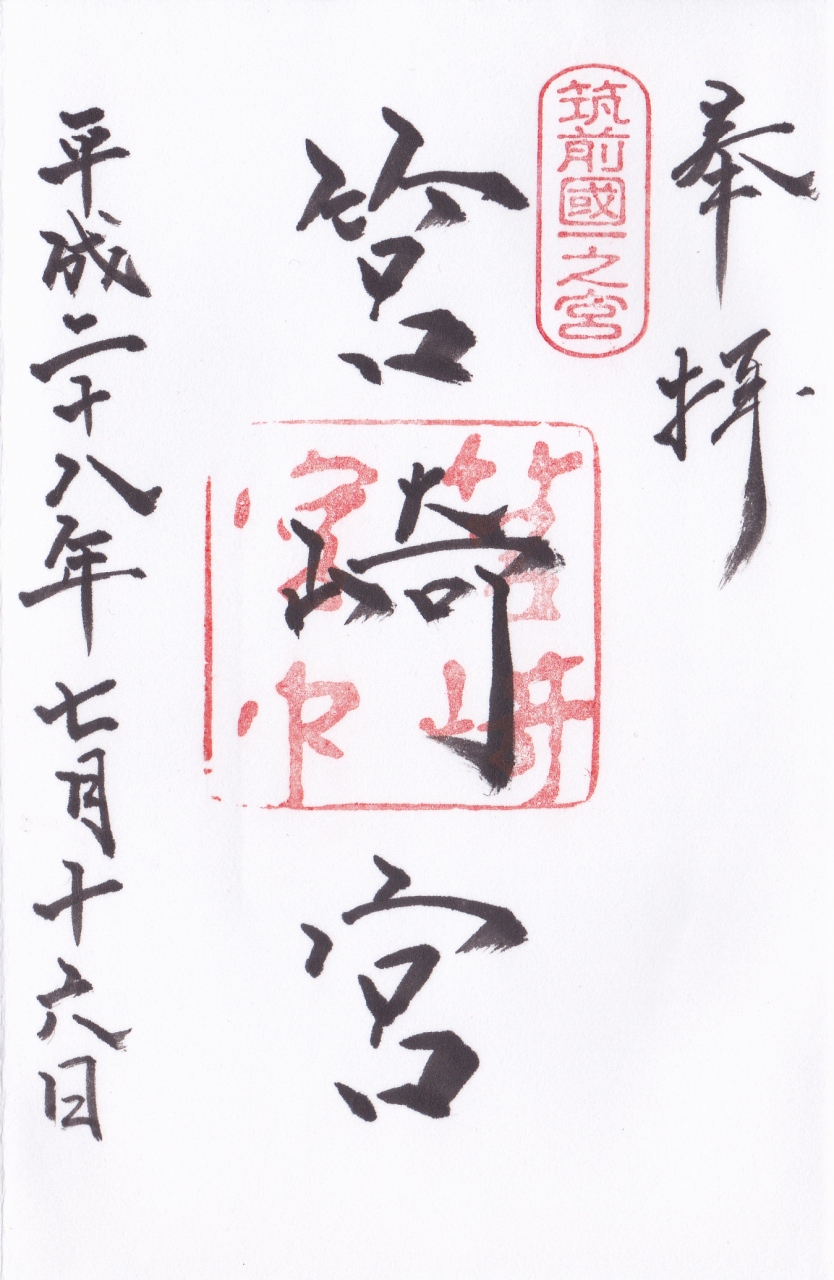 奉拝
筑前國一之宮
筥崎宮
筥崎
宮印
平成二十八年七月十六日